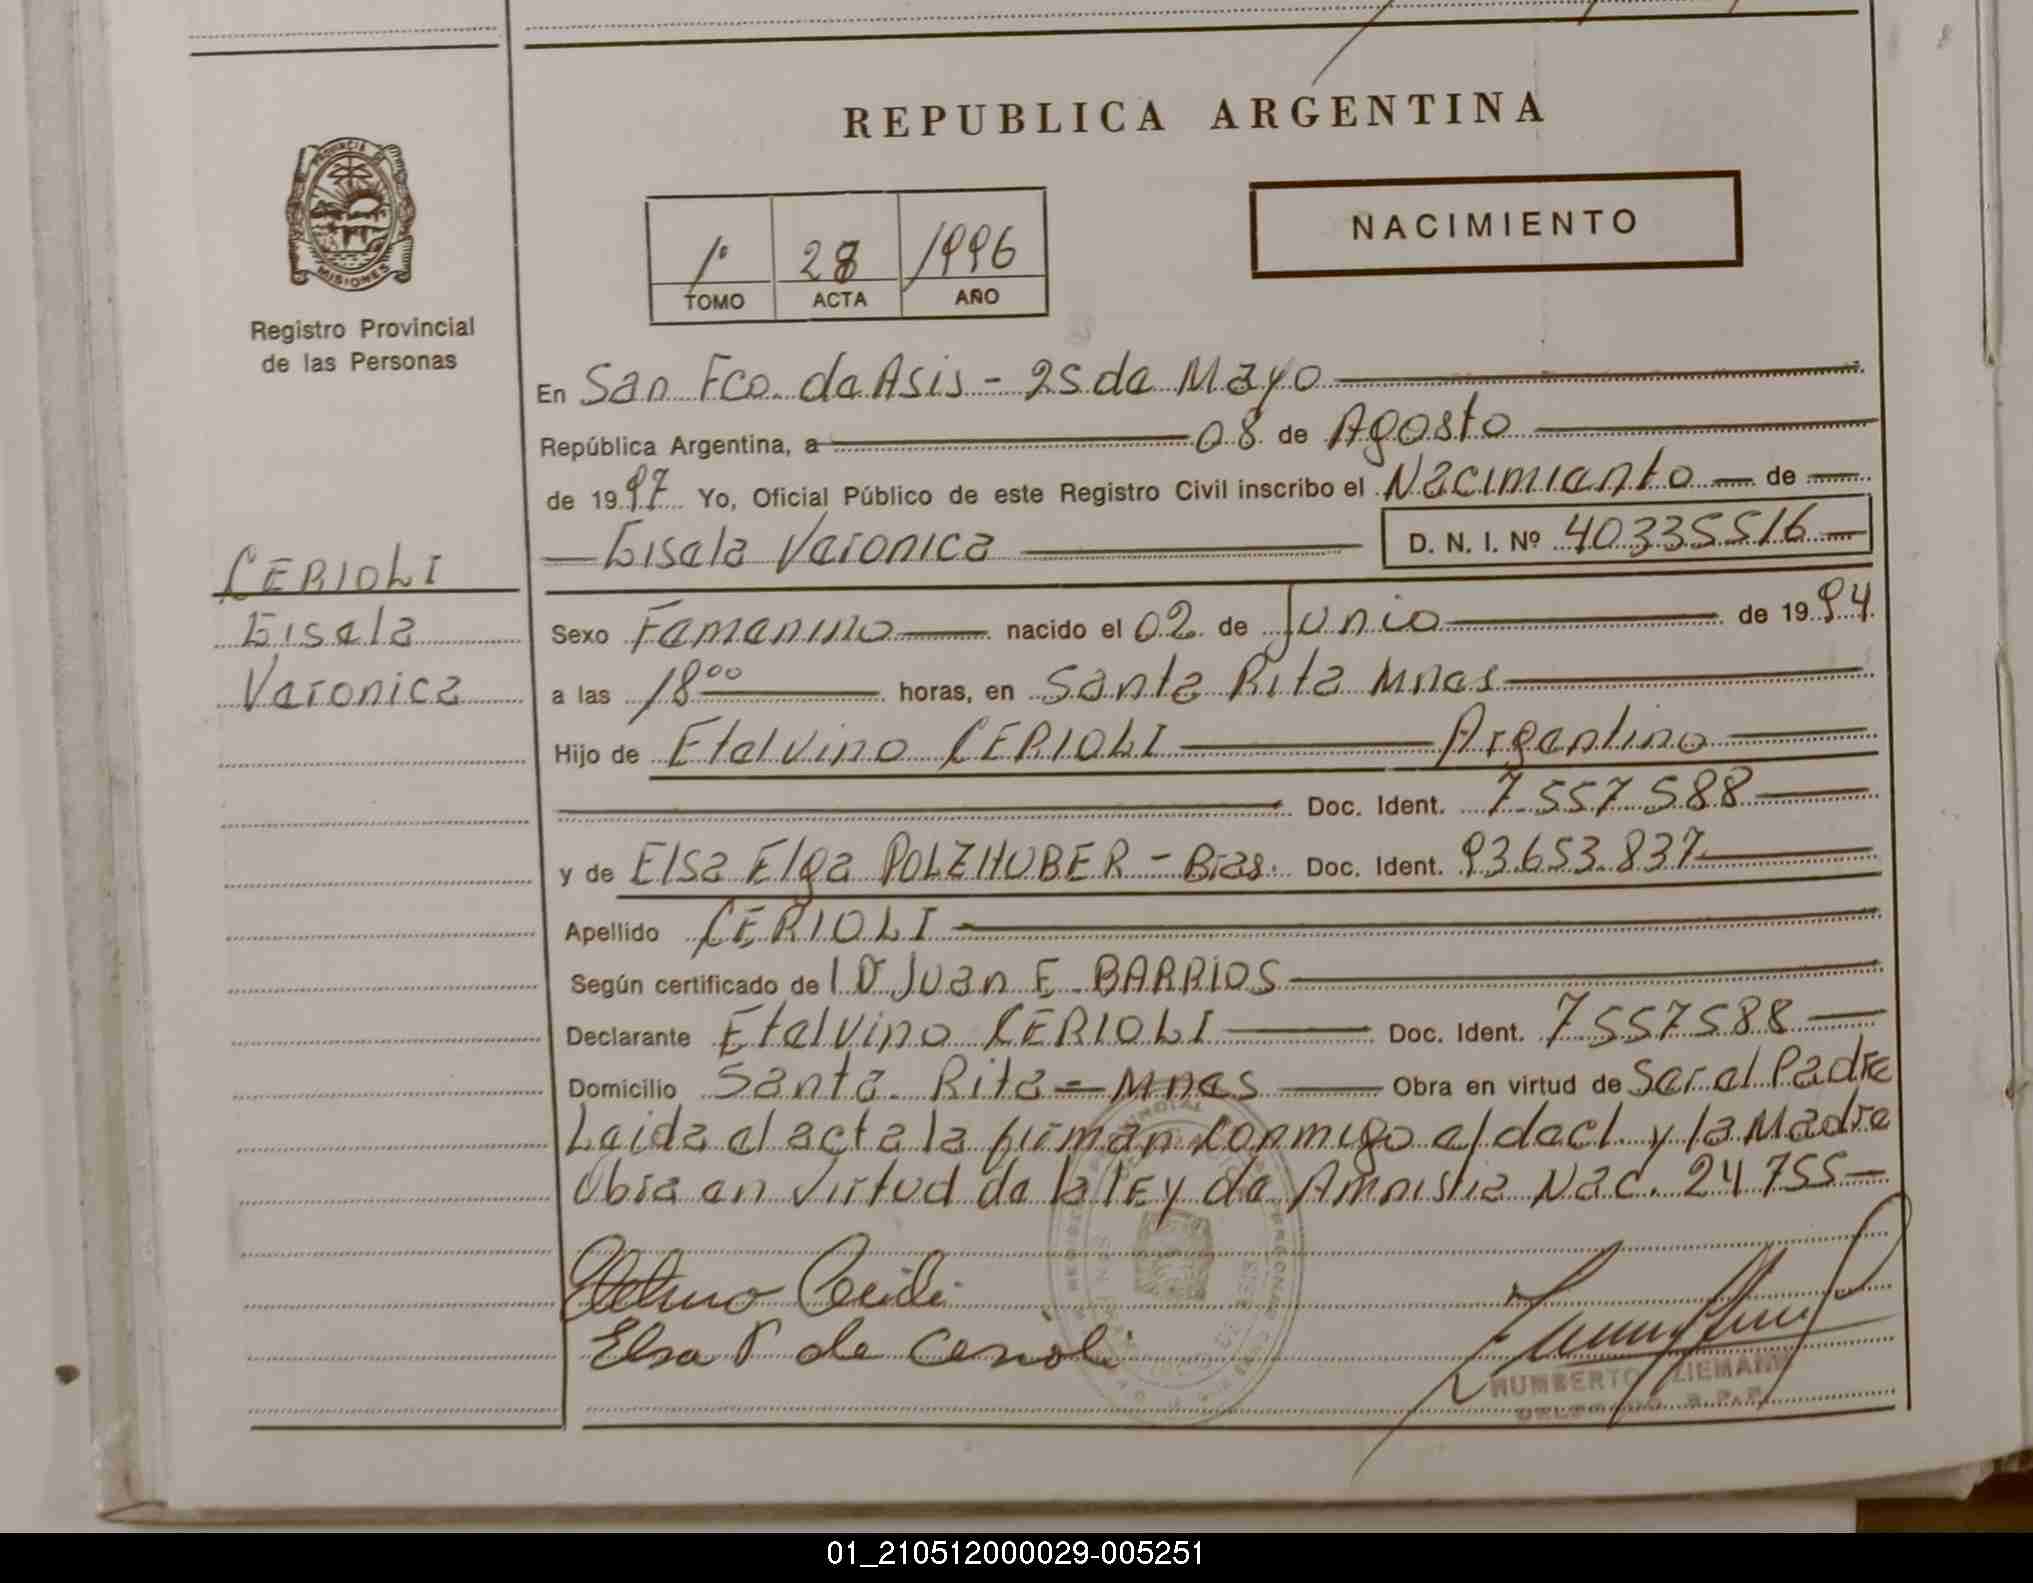 REPUBLICA ARGENTINA
PROVINCIA DE
MISIONES
Registro Provincial
de las Personas
NACIMIENTO
1º 28 1996
TOMO ACTA AÑO
En San Fco. de Asis - 25 de Mayo
República Argentina, a 08 de Agosto
de 1997 Yo, Oficial Público de este Registro Civil inscribo el Nacimiento de
Gisela Veronica D. N. I. Nº 40335516
CERIOLI
Gisela
Veronica
Sexo Femenino nacido el 02 de Junio de 1994
a las 18⁰⁰ horas, en Santa Rita Mnes
Hijo de Etelvino CERIOLI Argentino
Doc. Ident. 7557588
y de Elsa Elga POLZHUBER - Bras. Doc. Ident. 93.653.837
Apellido CERIOLI
Según certificado de Juan E. BARRIOS
Declarante Etelvino CERIOLI Doc. Ident. 7557588
Domicilio Santa Rita - Mnes Obra en virtud de Ser el Padre
Leida el acta la firman conmigo el decl. y la Madre
Obra en virtud de la LEy de Amnistia Nac. 24755
Etelvino Cerioli
Elsa P de Cerioli
HUMBERTO ZIEMANN
01_210512000029-005251